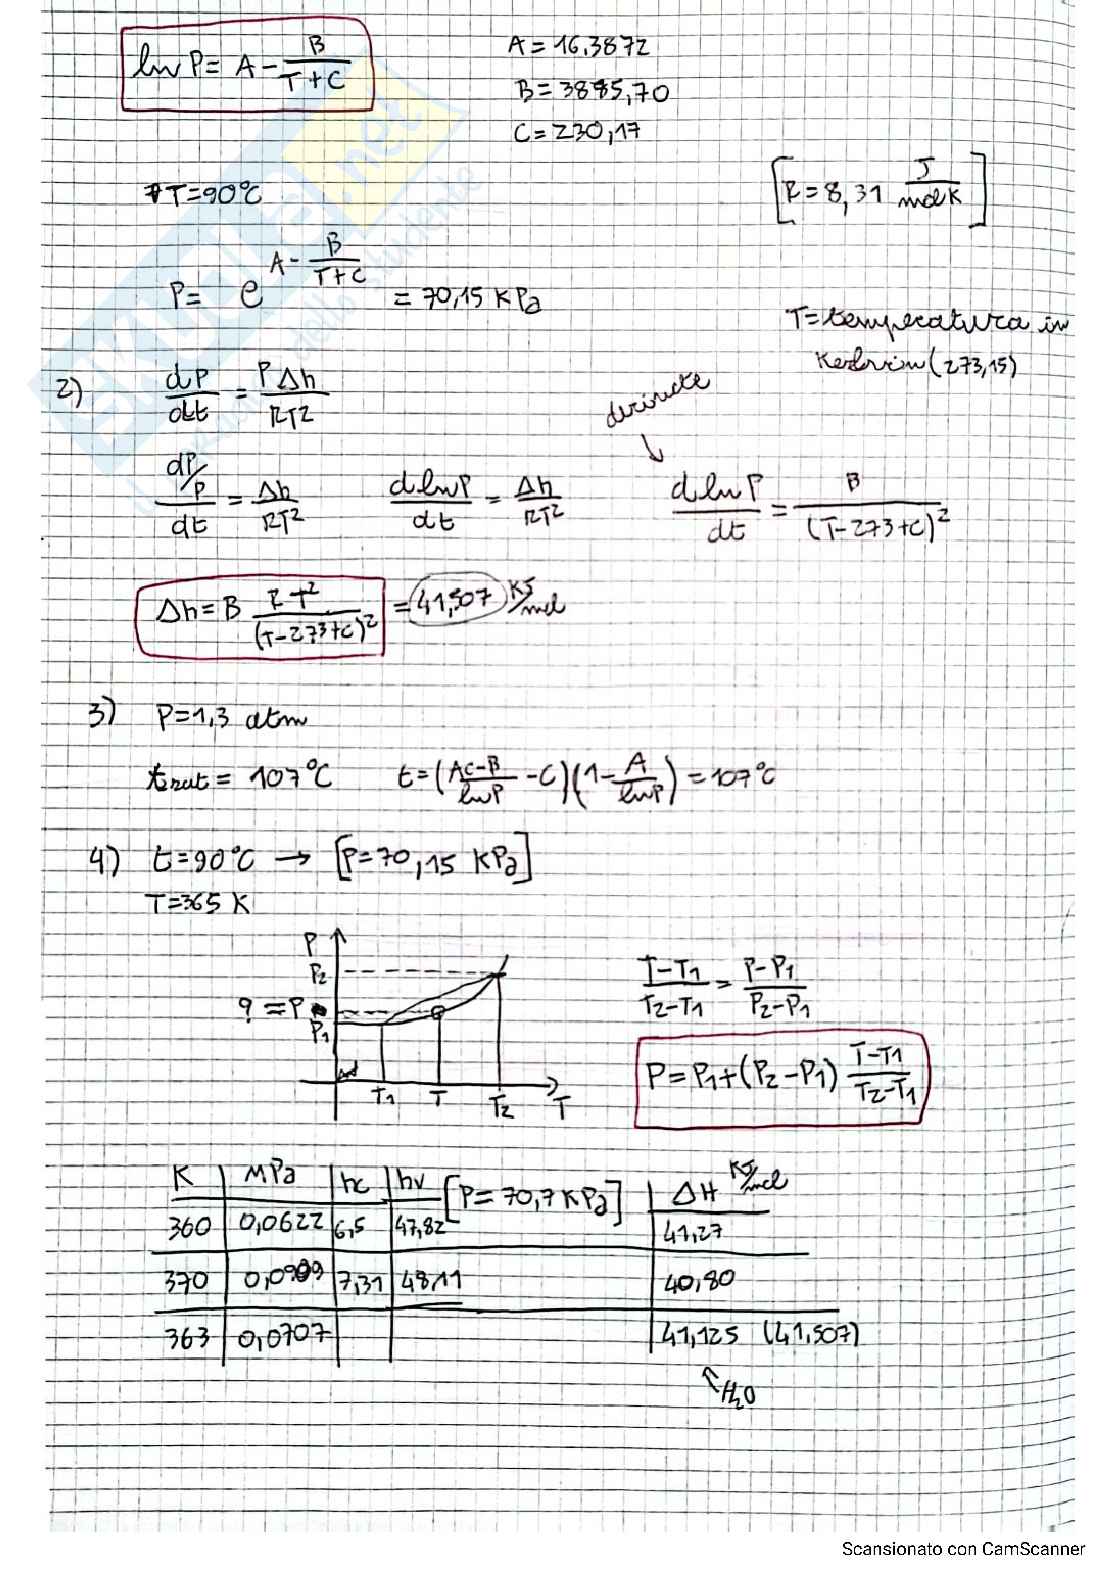 ln P = A - B/(T+C)
A = 16,3872
B = 3885,70
C = 230,17
T = 90°C
[R = 8,31 J/mol K]
P = e^(A - B/(T+C)) = 70,15 KPa
T = temperatura in
Kelvin (273,15)
2) dP/dt = PΔh/RT²
derivate
(dP/P)/dt = Δh/RT²
d ln P/dt = Δh/RT²
d ln P/dt = B/(T-273+C)²
Δh = B RT²/(T-273+C)² = 41,507 KJ/mol
3) P = 1,3 atm
tsat = 107°C
t = ((AC-B)/lnP - C)(1 - A/lnP) = 107°C
4) t = 90°C → [P = 70,15 KPa]
T = 365 K
P
P2
? = P
P1
T1 T T2 T
(T-T1)/(T2-T1) = (P-P1)/(P2-P1)
P = P1 + (P2-P1) (T-T1)/(T2-T1)
K MPa hc hv [P = 70,7 KPa] ΔH KJ/mol
360 0,0622 6,5 47,82 41,27
370 0,0909 7,31 48,11 40,80
363 0,0707 41,125 (41,507)
H2O
SKUOLA.net
Il paradiso dello studente
Scansionato con CamScanner